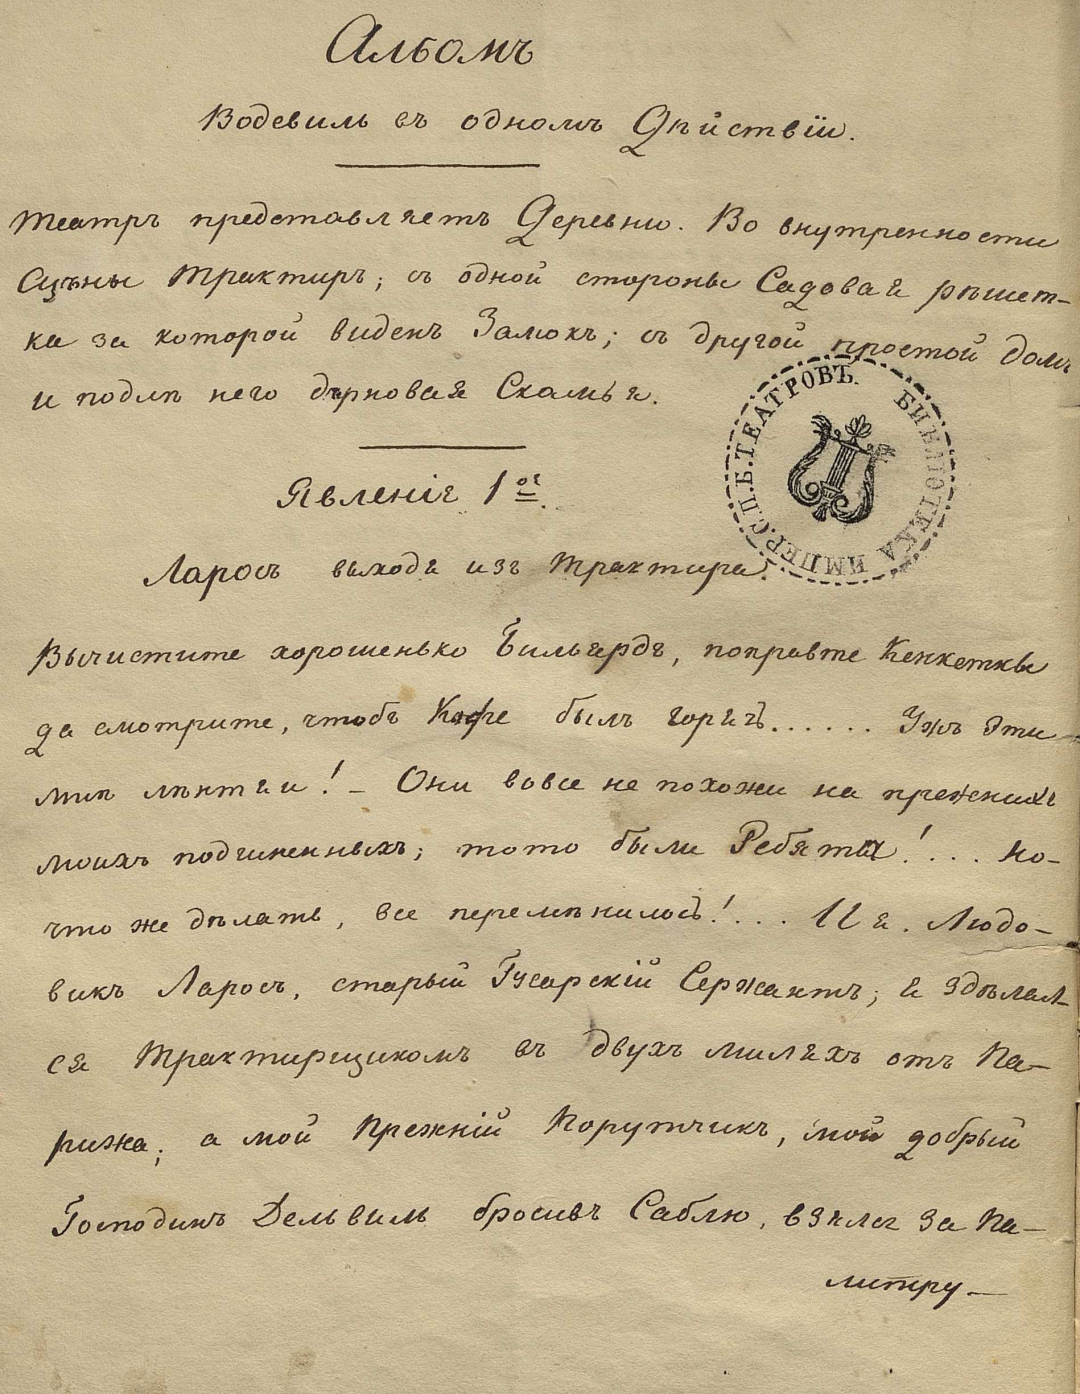 Альбомъ
Водевиль въ одномъ Дѣйствіи.
Театръ представляетъ Деревню. Во внутренности
Сцѣны трактиръ; съ одной стороны Садовая рѣшет-
ка за которой виденъ Замокъ; съ другой простой домъ
и подлѣ него дѣрновая Скамья.
БИБЛІОТЕКА ИМПЕР. С.П.Б. ТЕАТРОВЪ.
Явленіе 1ое.
Ларосъ выходя изъ трактира.
Вычистите хорошенько Бильярдъ, поправте Кенкетки
да смотрите, чтобъ Кофе былъ горячъ...... Ужъ эти
мнѣ лѣнтяи! – Они вовсе не похожи на прежнихъ
моихъ подчиненныхъ; тото были Ребята!... Но-
что же дѣлать, все перемѣнилось!... И я. Людо-
викъ Ларосъ, старый Гусарскій Сержантъ; я здѣлал-
ся трактирщикомъ въ двухъ миляхъ отъ Па-
рижа; а мой Прежній Порутчикъ, мой добрый
Господинъ Дельвиль бросивъ Саблю, взялся за Па-
литру –